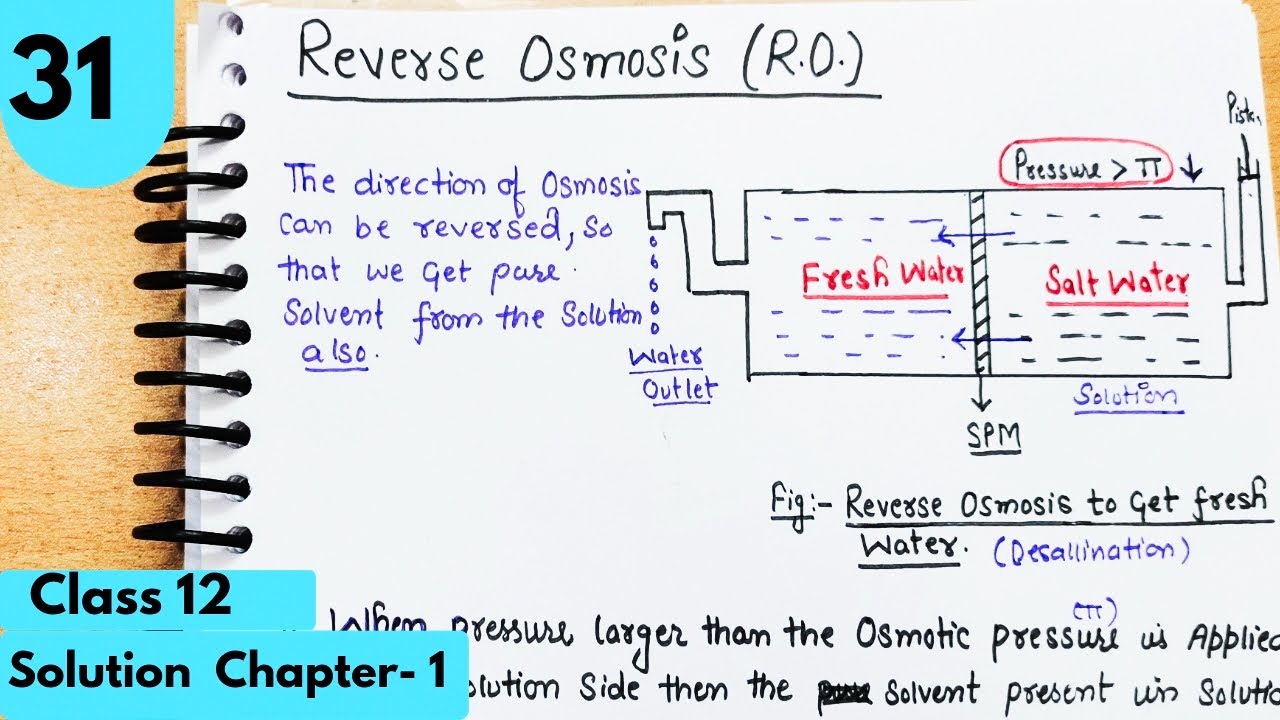 31
Reverse Osmosis (R.O.)
The direction of Osmosis
can be reversed, so
that we Get pure.
Solvent from the Solution
also.
Pressure > π
Fresh Water
Salt Water
Water
Outlet
Solution
SPM
Fig:- Reverse Osmosis to Get fresh
Water. (Desallination)
(π)
When pressure larger than the Osmotic pressure is Applied
Solution Side then the solvent present in
Class 12
Solution Chapter- 1